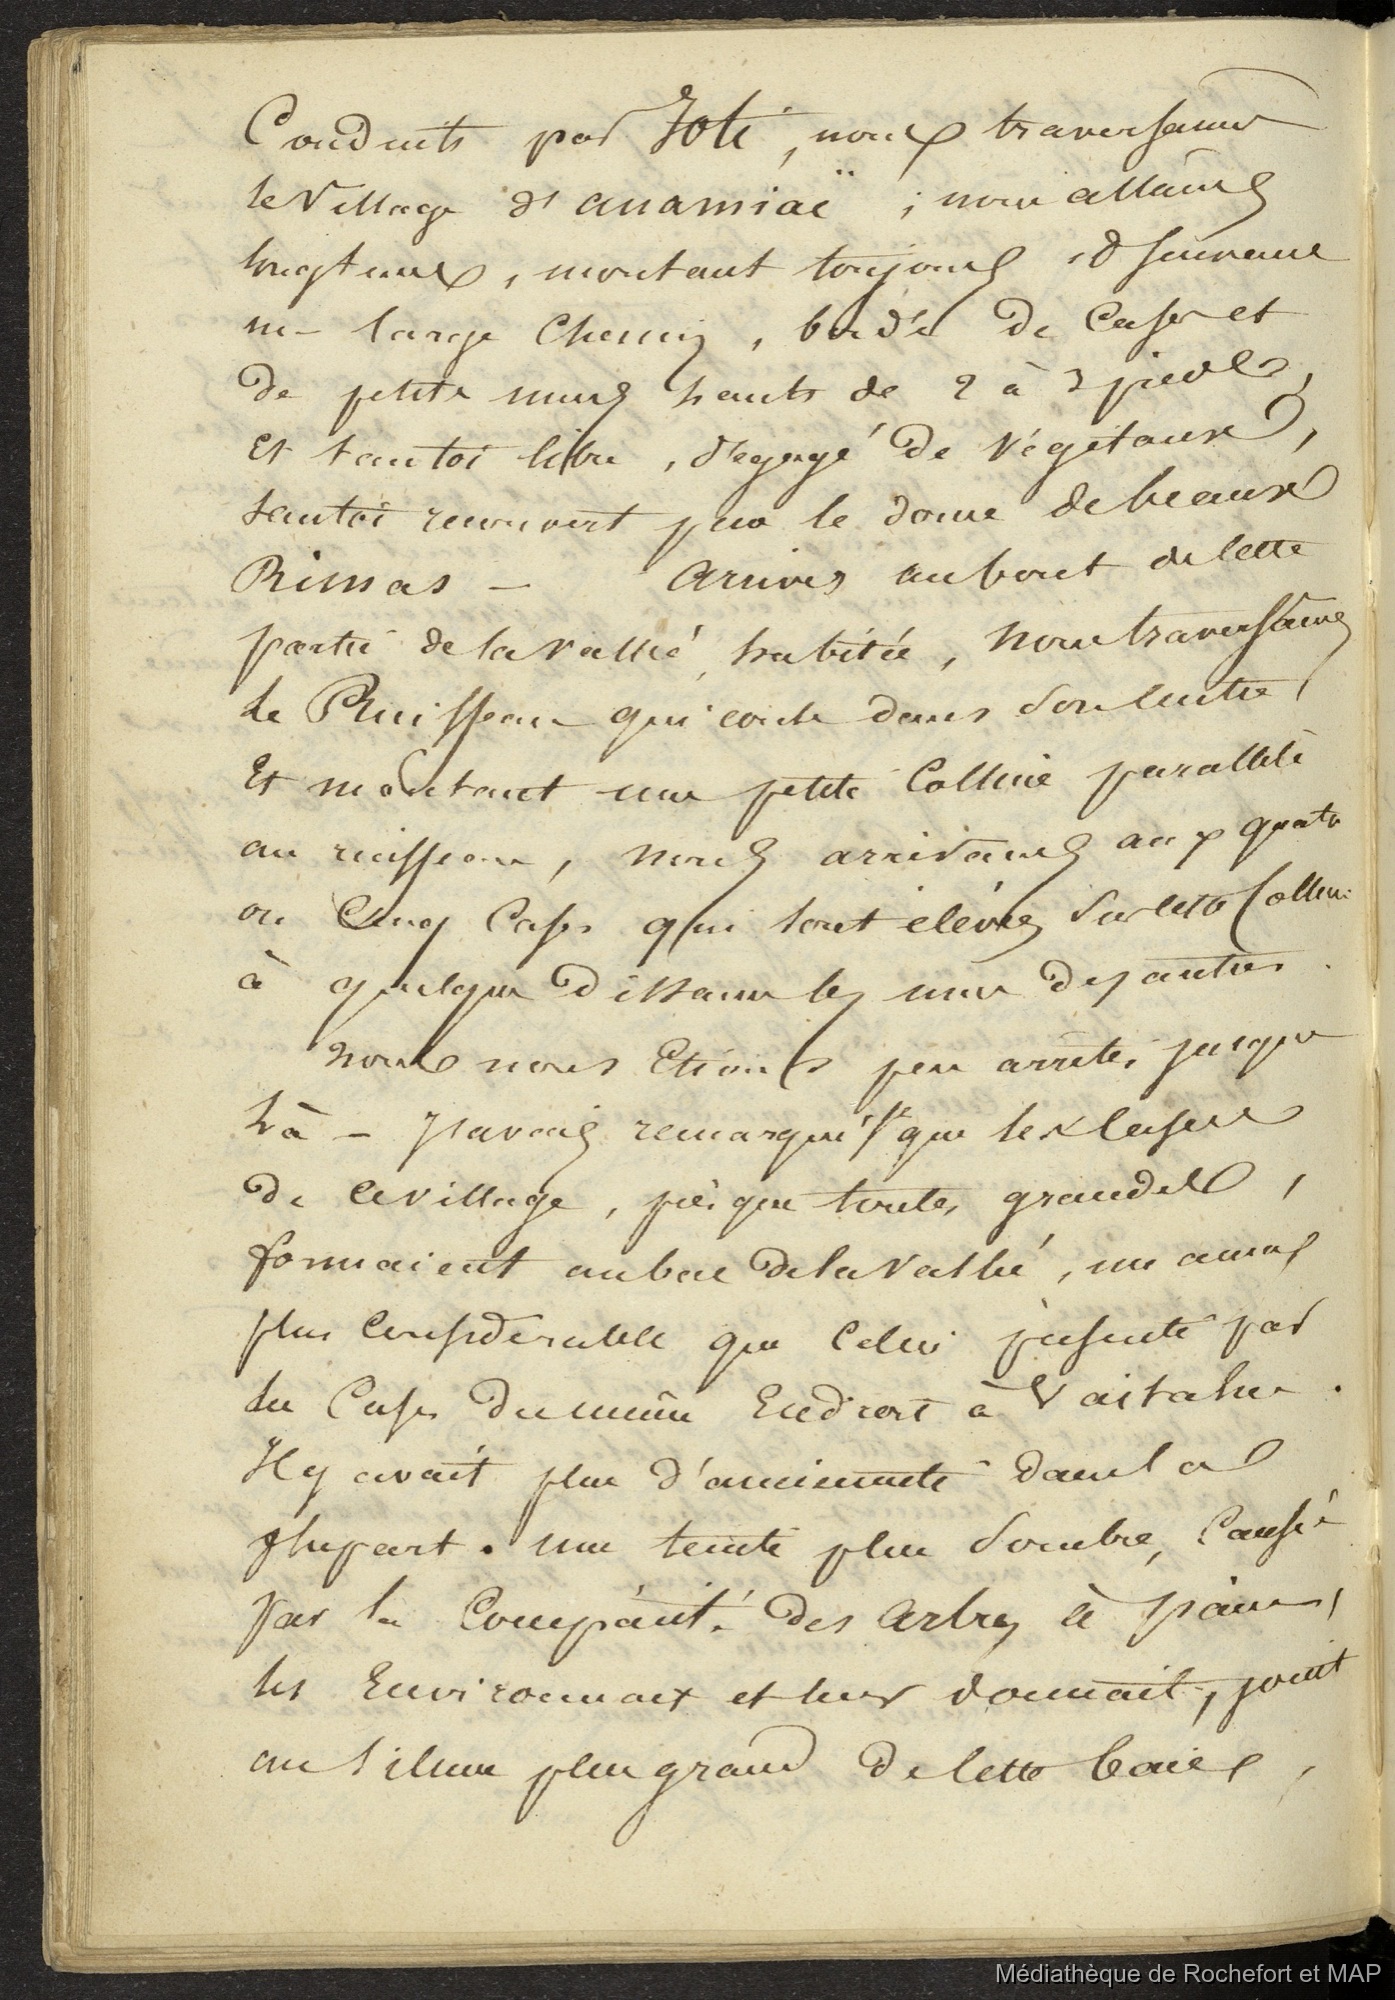 Conduits par Ioté, nous traversames
le Village d'anamiaï ; nous allâmes
longtems, montant toujours et suivant
un large Chemin, bordé de Cases et
de petits murs hauts de 2 à 3 pieds,
Et tantot libre, dégagé de végétaux,
tantot recouvert par le dome de beaux
Rimas - Arrivés au bout de cette
partie de la Vallée habitée, nous traversâmes
le Ruisseau qui coule dans son centre,
Et montant une petite Colline parallèle
au ruisseau, nous arrivames aux quatre
ou Cinq Cases qui sont élevées sur cette Colline
à quelque distance les unes des autres.
nous nous Etions peu arrêtés jusque
là - J'avais remarqué que les Cases
de ce village, presque toutes grandes,
formaient au bas de la Vallée, un amas
plus Considérable que Celui présenté par
les Cases du même Endroit à Vaitahu.
Il y avait plus d'ancienneté dans la
plupart. une teinte plus sombre, Causée
par la Compacité des Arbres à pain,
les Environnait et leur donnait, joint
au silence plus grand de cette baie,
Médiathèque de Rochefort et MAP